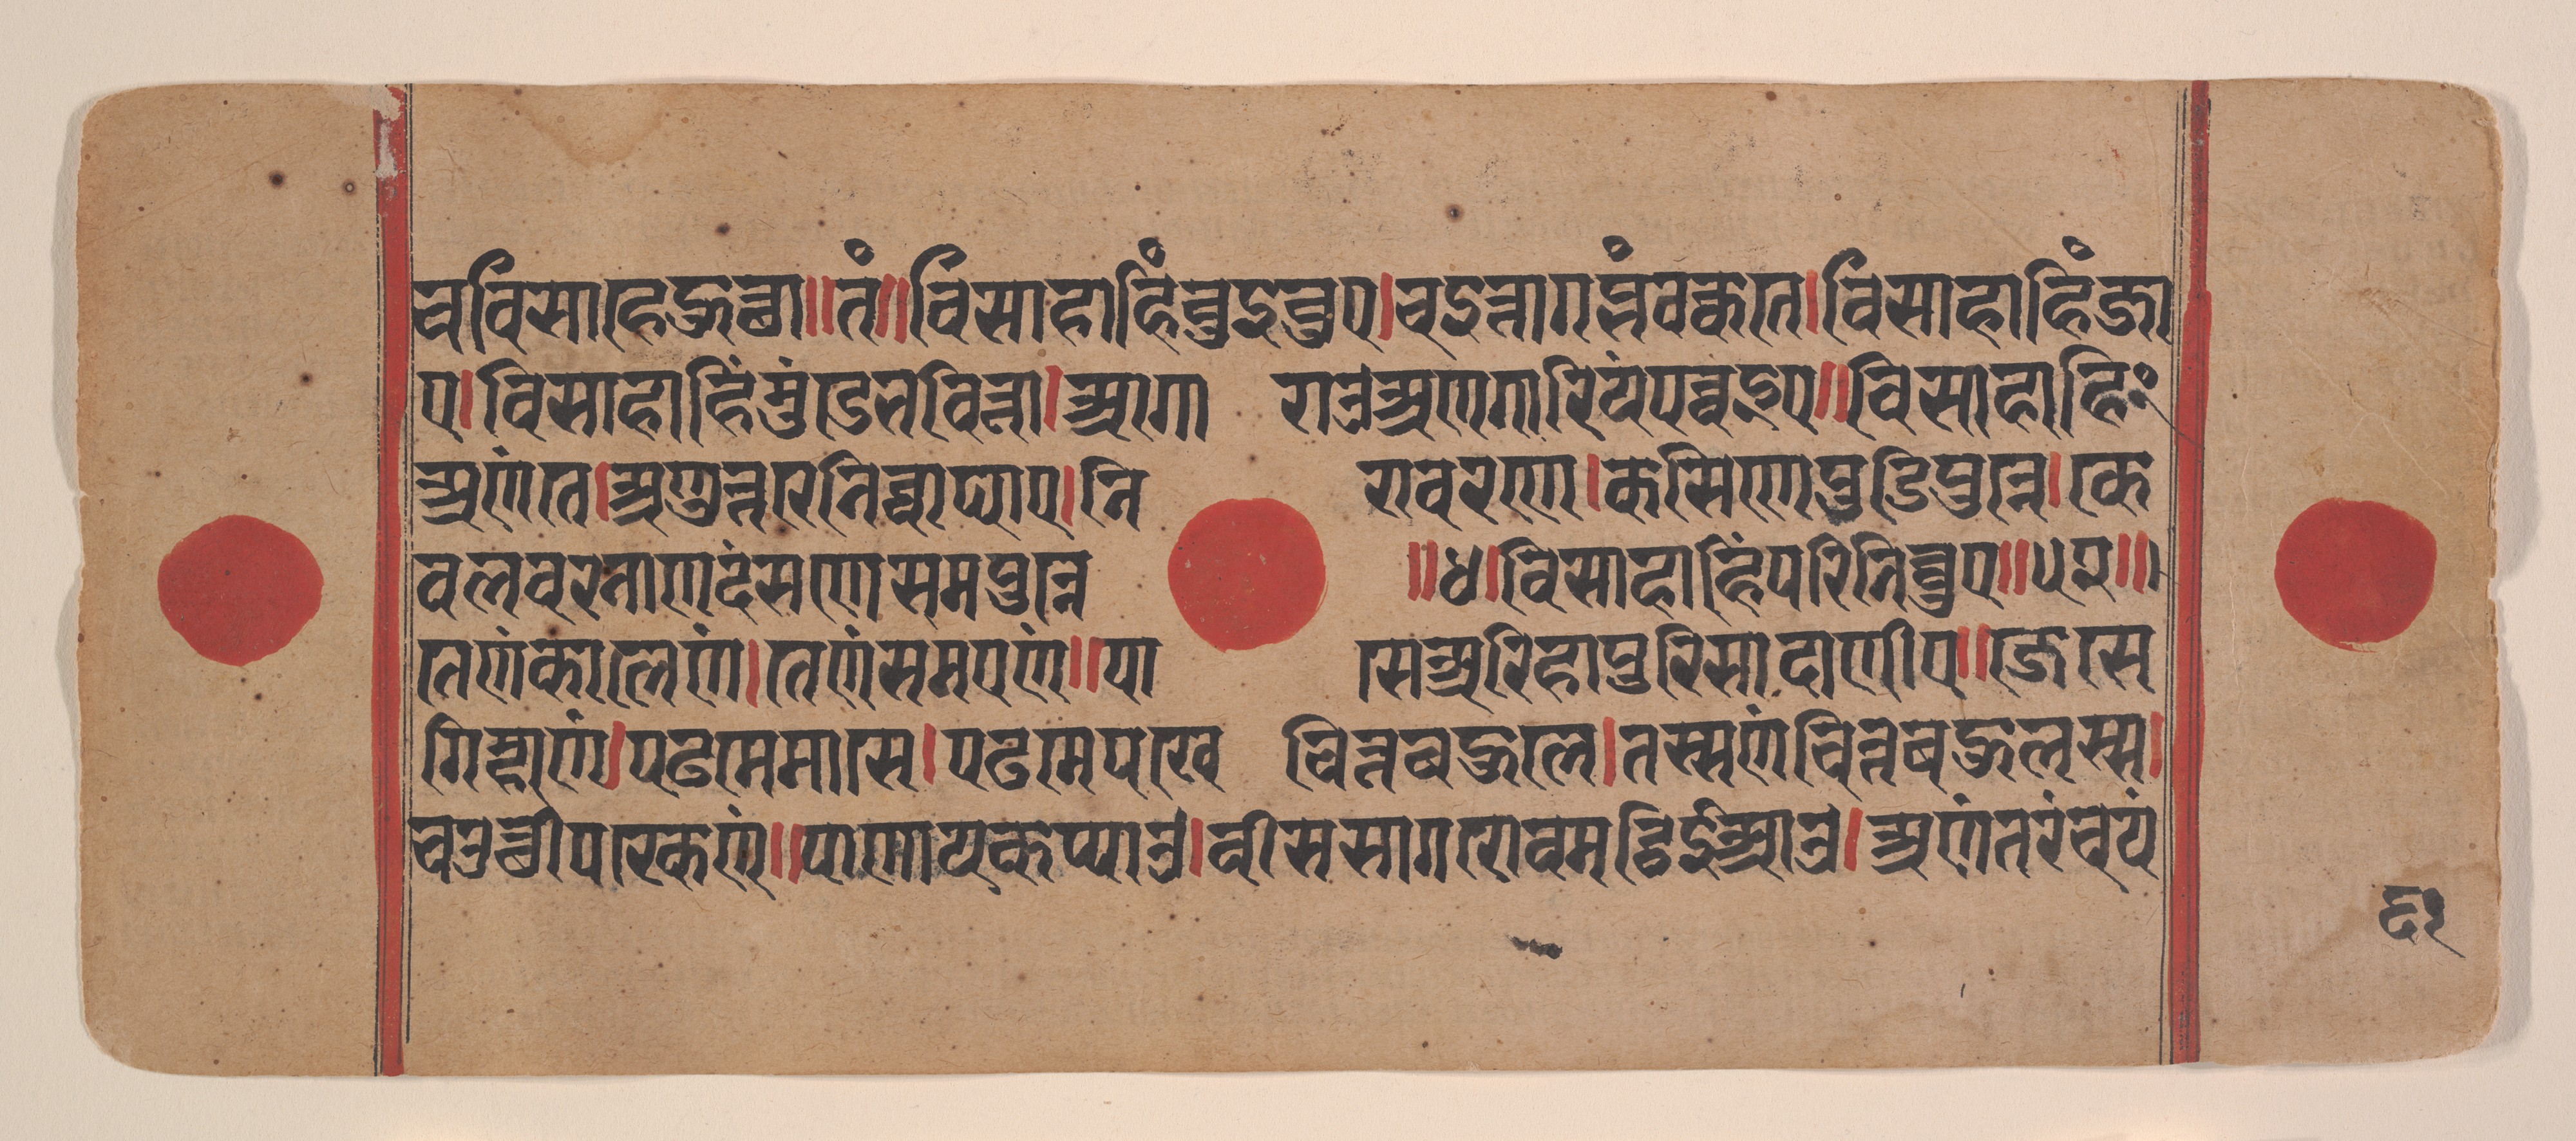 चविसाहेहुत्था॥तं॥विसाहाहिंचुइचुए।चइत्तागब्भंवक्कंते।विसाहाहिंजा
ए।विसाहाहिंमुंडेभवित्ता।आगाराओअणगारियंपव्वइए॥विसाहाहिं
अणंते।अणुत्तरेनिव्वाघाए।निरावरणे।कसिणेपुडिपुन्ने।केव
वलवरनाणदंसणेसमपुन्ने॥४।विसाहाहिंपरिनिव्वुए॥५२॥
तेणंकालेणं।तेणंसमएणं॥पासेअरिहापुरिसादाणीए॥जेसे
गिम्हाणं।पढमेमासे।पढमेपखेचित्तबहुले।तस्सणंचित्तबहुलस्स।
चउत्थीपरकेणं॥पाणायकप्पाओ।वीससागरोवमट्ठिईआओ।अणंतरंचयं
६१